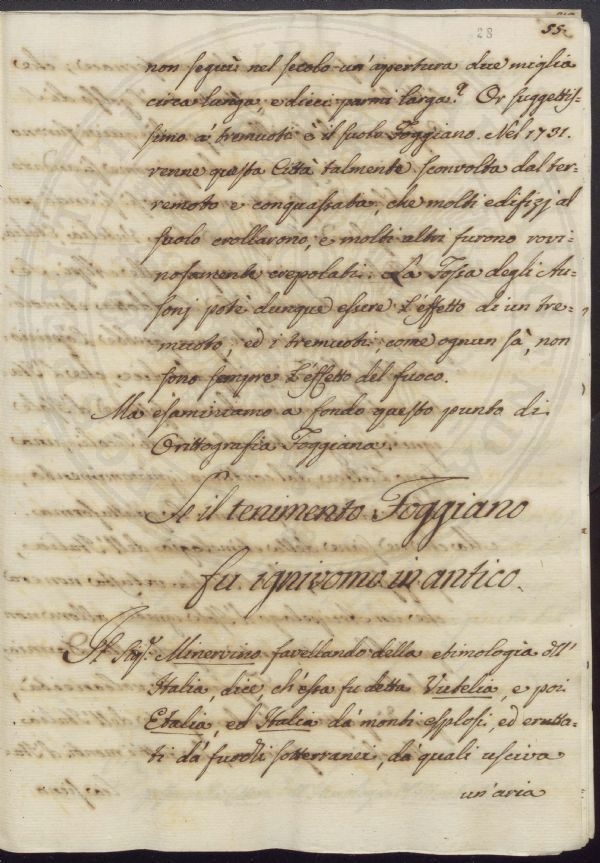 28
55.
non seguì nel secolo un'apertura due miglia
circa lunga e dieci parmi larga? Or suggettis-
simo a' tremuoti è il suolo Foggiano. Nel 1731.
venne questa Città talmente sconvolta dal ter-
remoto e conquassata, che molti edifizj al
suolo crollarono, e molti altri furono rovi-
nosamente crepolati. La Fossa degli Au-
sonj potè dunque essere l'effetto di un tre-
muoto, ed i tremuoti, come ognun sà, non
sono sempre l'effetto del fuoco.
Ma esaminiamo a fondo questo punto di
Orittografia Foggiana.
Se il tenimento Foggiano
fu ignivomo in antico.
Il Sigr. Minervino favellando della etimologia dell'
Italia, dice, ch'essa fu detta Vitelia, e poi
Etalia, ed Italia da' monti esplosi, ed erutta-
ti da' fuochi sotterranei, da' quali usciva
un'aria